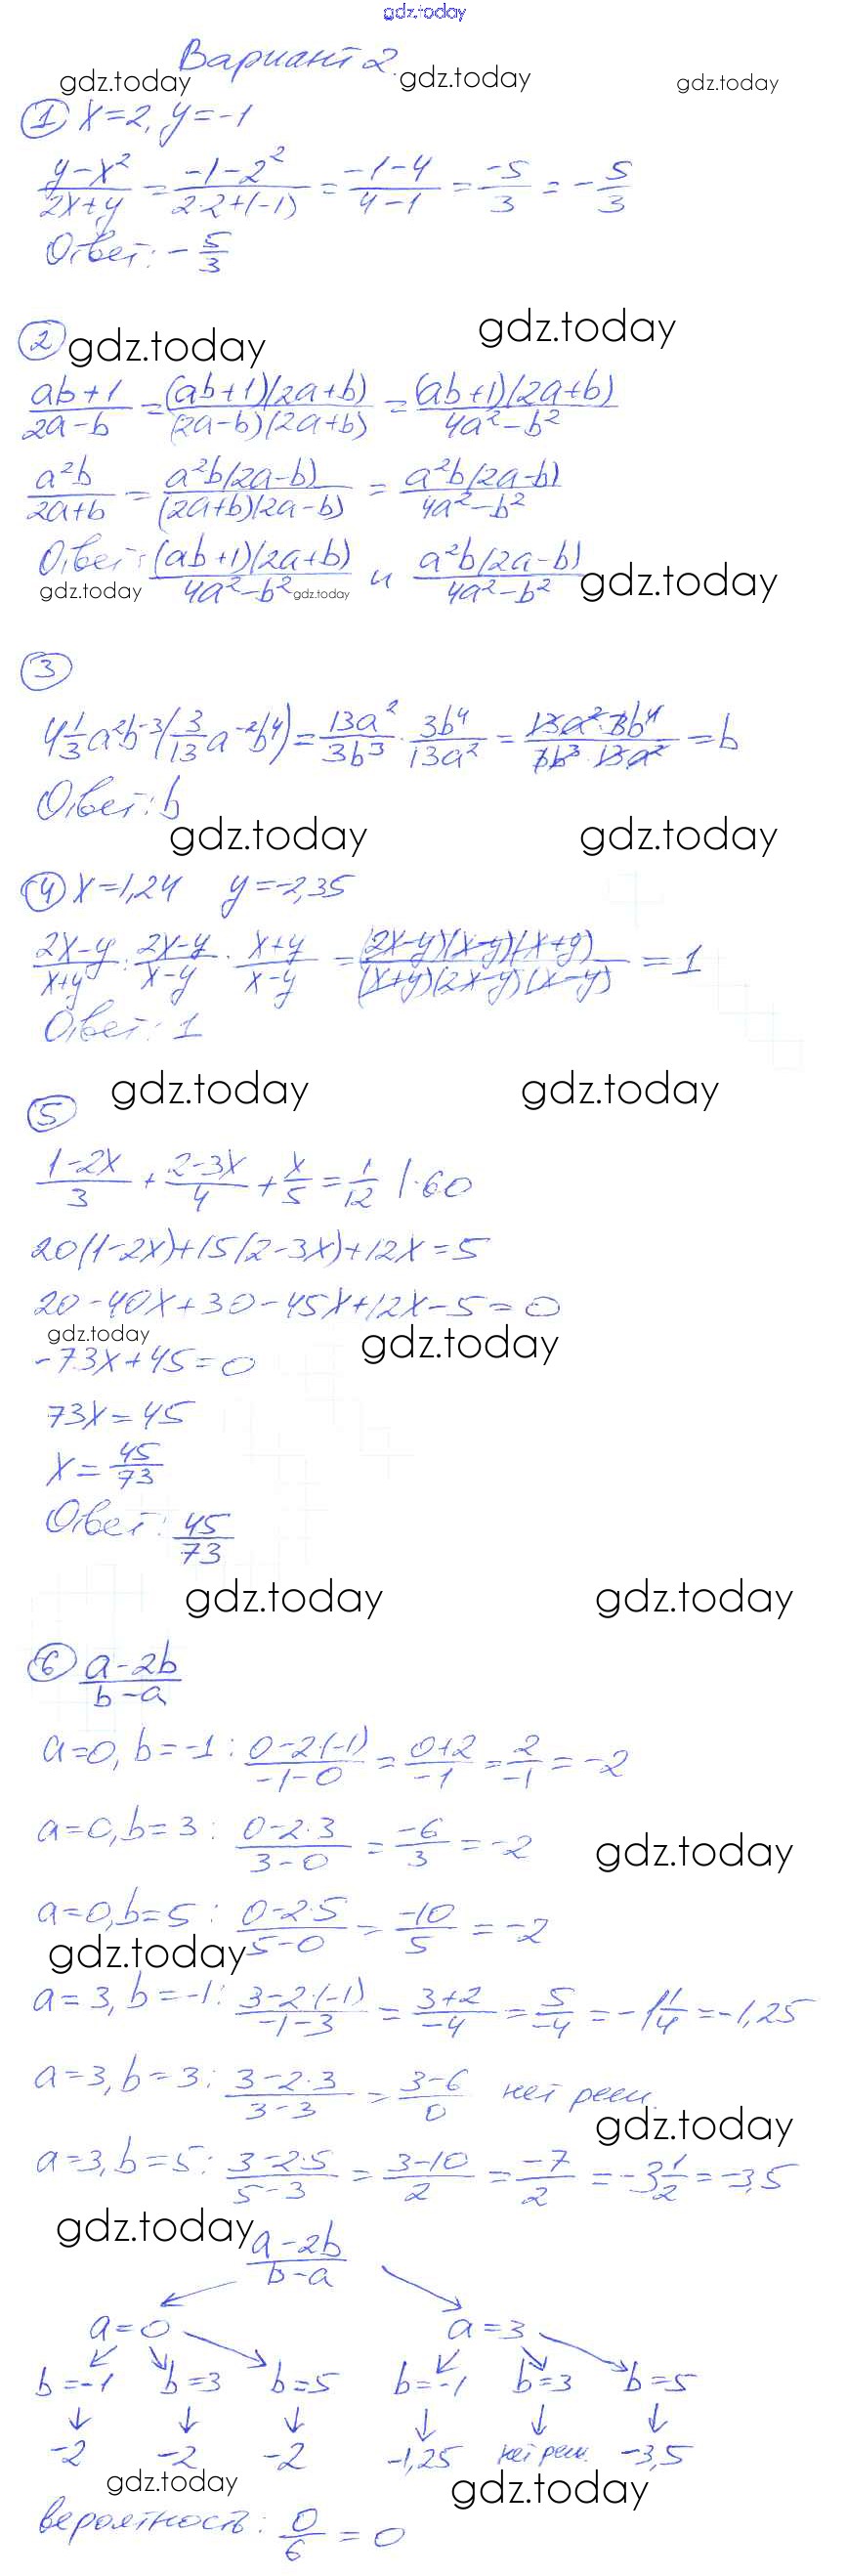 gdz.today
Вариант 2
gdz.today gdz.today gdz.today
① x=2, y=-1
(y-x²)/(2x+y) = (-1-2²)/(2·2+(-1)) = (-1-4)/(4-1) = -5/3 = -5/3
Ответ: -5/3
② gdz.today gdz.today
(ab+1)/(2a-b) = (ab+1)(2a+b)/(2a-b)(2a+b) = (ab+1)(2a+b)/(4a²-b²)
a²b/(2a+b) = a²b(2a-b)/(2a+b)(2a-b) = a²b(2a-b)/(4a²-b²)
Ответ: (ab+1)(2a+b)/(4a²-b²) и a²b(2a-b)/(4a²-b²)
gdz.today gdz.today gdz.today
③
4 1/3 a²b⁻³(3/13 a⁻²b⁴) = 13a²/3b³ · 3b⁴/13a² = 13a²·3b⁴/3b³·13a² = b
Ответ: b
gdz.today gdz.today
④ x=1,24 y=-2,35
(2x-y)/(x+y) : (2x-y)/(x-y) · (x+y)/(x-y) = (2x-y)(x-y)(x+y)/(x+y)(2x-y)(x-y) = 1
Ответ: 1
gdz.today gdz.today
⑤
(1-2x)/3 + (2-3x)/4 + x/5 = 1/12 |·60
20(1-2x)+15(2-3x)+12x=5
20-40x+30-45x+12x-5=0
gdz.today gdz.today
-73x+45=0
73x=45
x=45/73
Ответ: 45/73
gdz.today gdz.today
⑥ (a-2b)/(b-a)
a=0, b=-1: (0-2·(-1))/(-1-0) = (0+2)/-1 = 2/-1 = -2
a=0, b=3: (0-2·3)/(3-0) = -6/3 = -2
gdz.today
a=0, b=5: (0-2·5)/(5-0) = -10/5 = -2
gdz.today
a=3, b=-1: (3-2·(-1))/(-1-3) = (3+2)/-4 = 5/-4 = -1 1/4 = -1,25
a=3, b=3: (3-2·3)/(3-3) = (3-6)/0 нет реш.
gdz.today
a=3, b=5: (3-2·5)/(5-3) = (3-10)/2 = -7/2 = -3 1/2 = -3,5
gdz.today
(a-2b)/(b-a)
a=0 a=3
b=-1 b=3 b=5 b=-1 b=3 b=5
-2 -2 -2 -1,25 нет реш. -3,5
gdz.today gdz.today
вероятность: 0/6 = 0